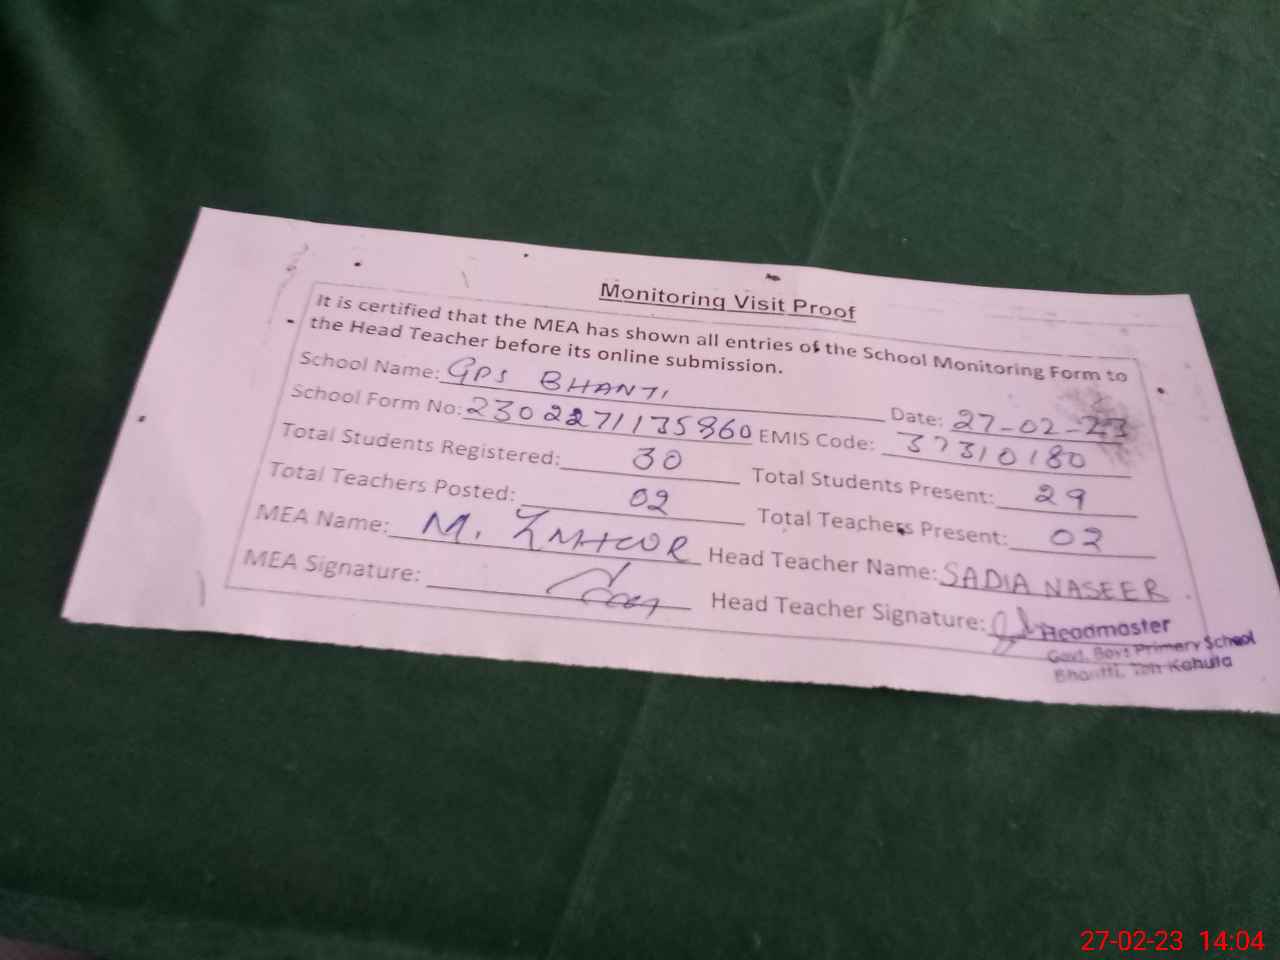 Monitoring Visit Proof
It is certified that the MEA has shown all entries of the School Monitoring Form to
the Head Teacher before its online submission.
School Name: GPS BHANTI Date: 27-02-23
School Form No: 2302271135860 EMIS Code: 37310180
Total Students Registered: 30 Total Students Present: 29
Total Teachers Posted: 02 Total Teachers Present: 02
MEA Name: M. Head Teacher Name: SADIA NASEER
MEA Signature: Head Teacher Signature:
Headmaster
Govt. Boys Primary School
Bhantti, Teh Kahuta
27-02-23 14:04